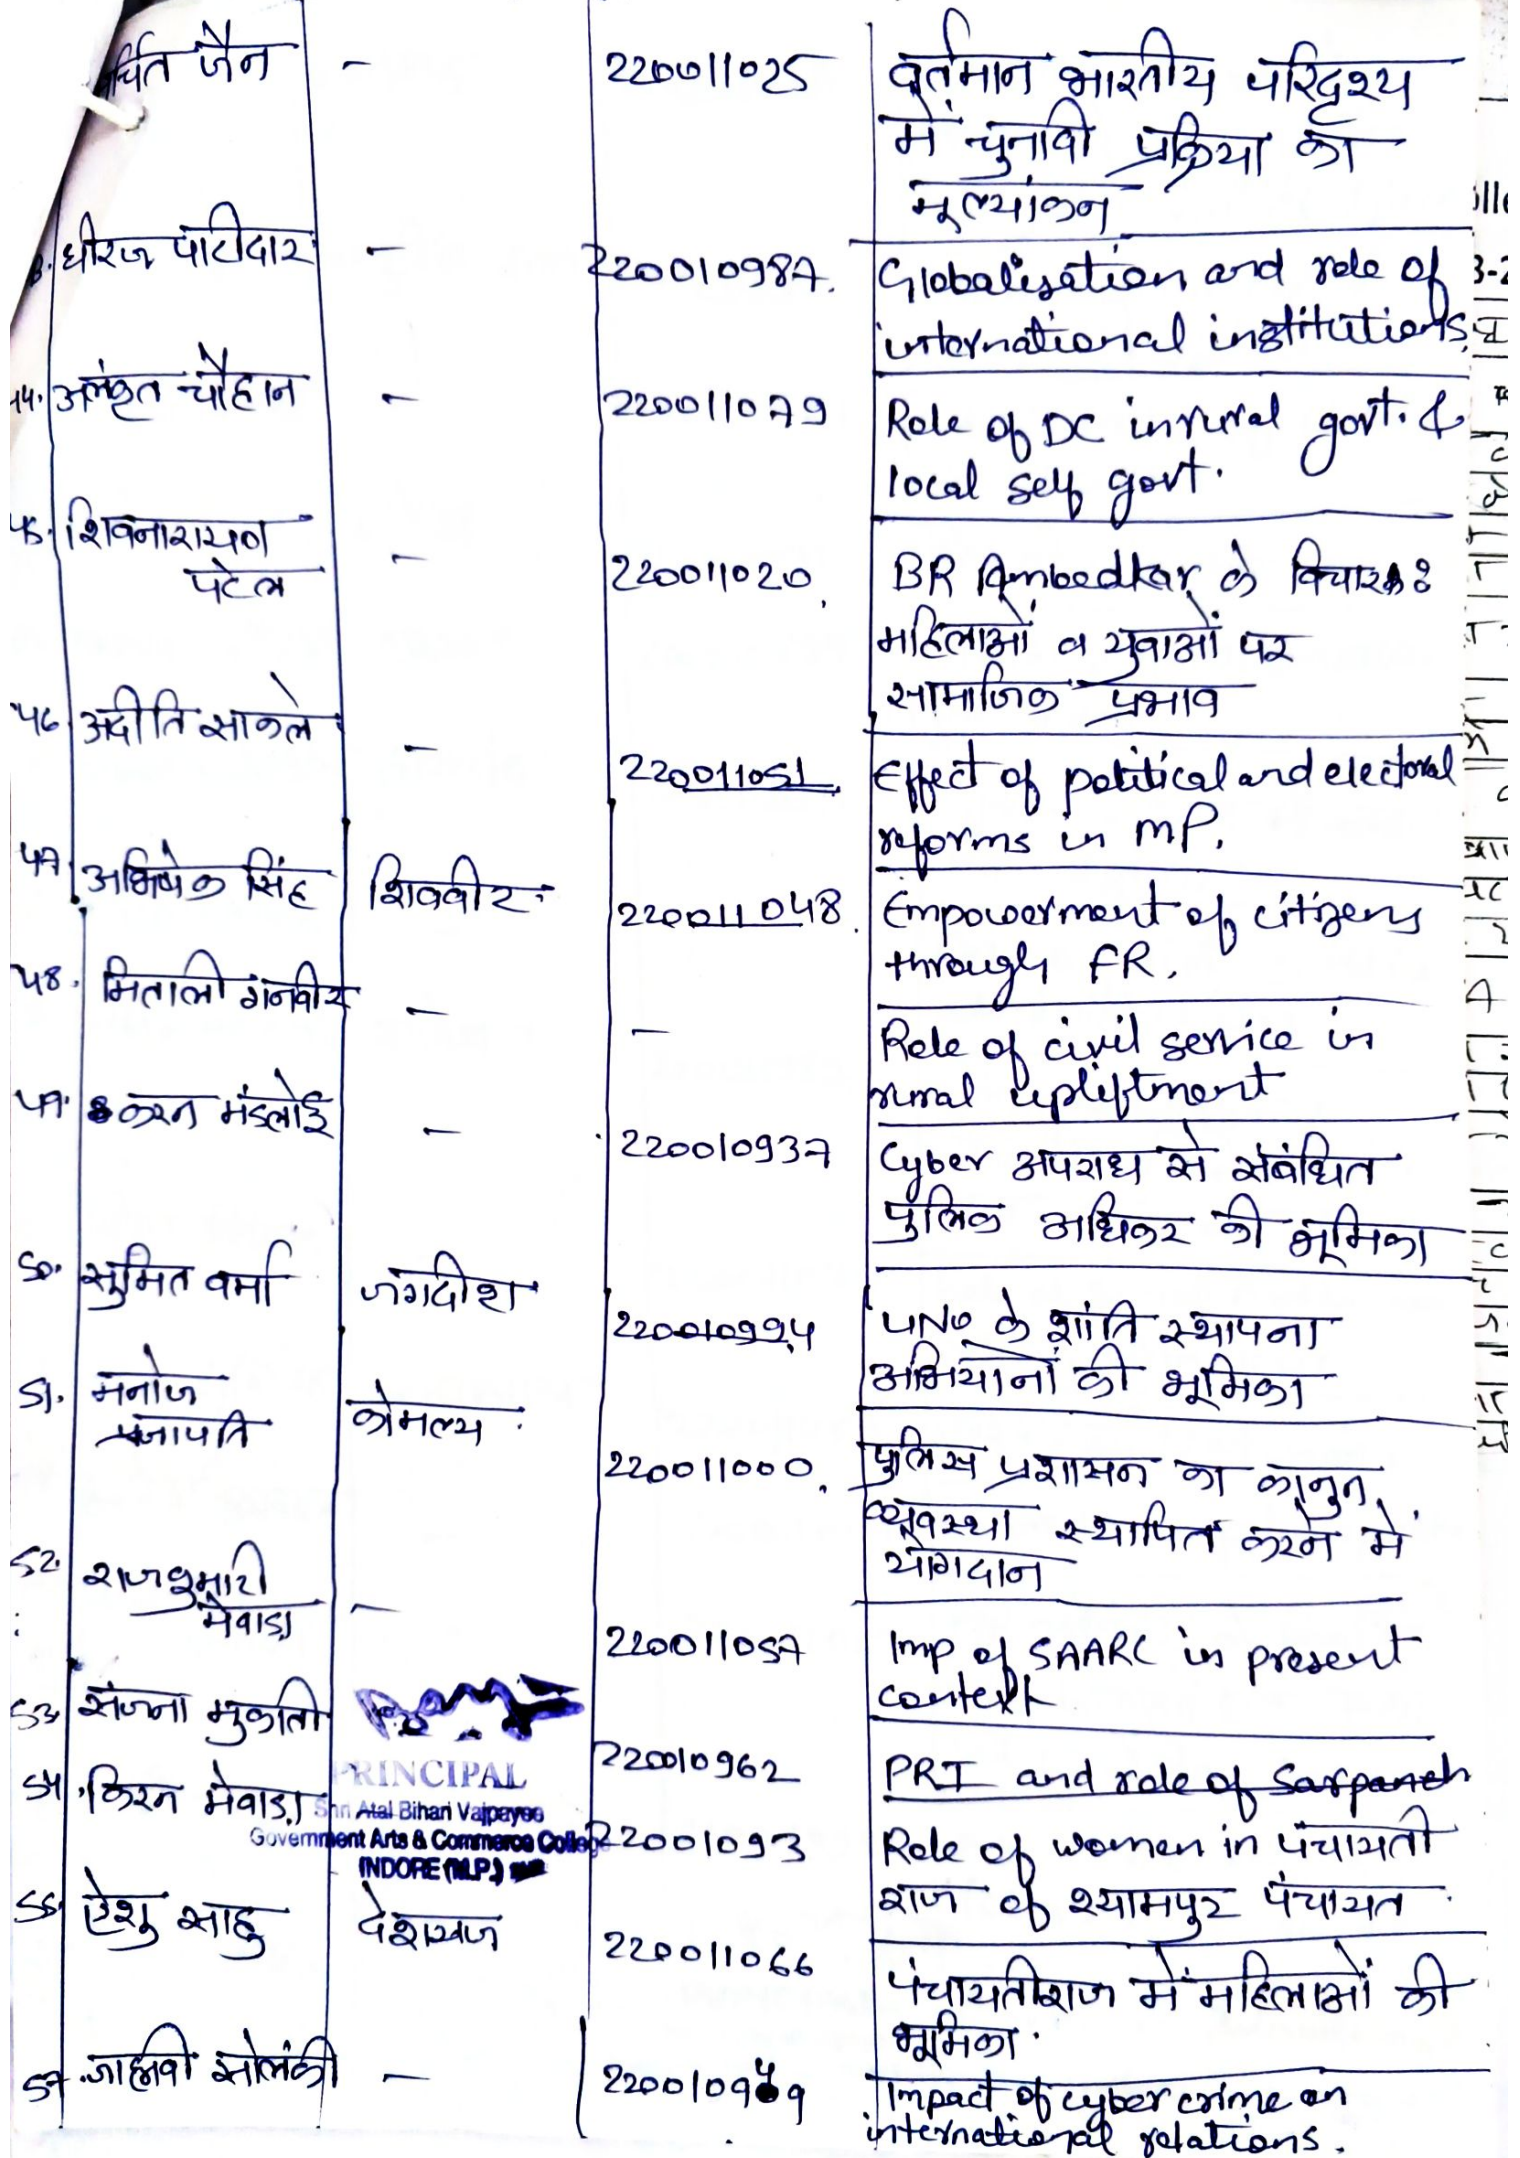 र्चित जैन - 220011025 वर्तमान भारतीय परिदृश्य
में चुनावी प्रक्रिया का
मूल्यांकन
धीरज पाटीदार - 220010987. Globalisation and role of
international institutions.
44. अलंकृत चौहान - 220011079 Role of DC in rural govt. &
local self govt.
45. शिवनारायण
पटेल - 220011020 BR Ambedkar के विचार :
महिलाओं व युवाओं पर
सामाजिक प्रभाव
46 अदीति साकले - 220011051 Effect of political and electoral
reforms in MP.
47. अभिषेक सिंह शिववीर 220011048 Empowerment of citizens
through FR.
48. मिताली गनवीर - - Role of civil service in
rural upliftment
49. करन मंडलोई - 220010937 Cyber अपराध से संबंधित
पुलिक अधिकर की भूमिका
50. सुमित वर्मा जगदीश 220010994 UNO के शांति स्थापना
अभियानों की भूमिका
51. मनोज
प्रजापति कोमल्य 220011000. पुलिस प्रशासन का कानुन
व्यवस्था स्थापित करने में
योगदान
52. राजकुमारी
मेवाड़ा - 220011057 Imp of SAARC in present
context
53 संजना मुकाती 220010962 PRI and role of Sarpanch
54. किरन मेवाड़ा 22001093 Role of women in पंचायती
राज of श्यामपुर पंचायत
PRINCIPAL
Shri Atal Bihari Vajpayee
Government Arts & Commerce College
INDORE (M.P.)
56. ऐशु साहु देशराज 220011066 पंचायतीराज में महिलाओं की
भूमिका.
57. जाह्नवी सोलंकी - 220010949 Impact of cyber crime on
international relations.